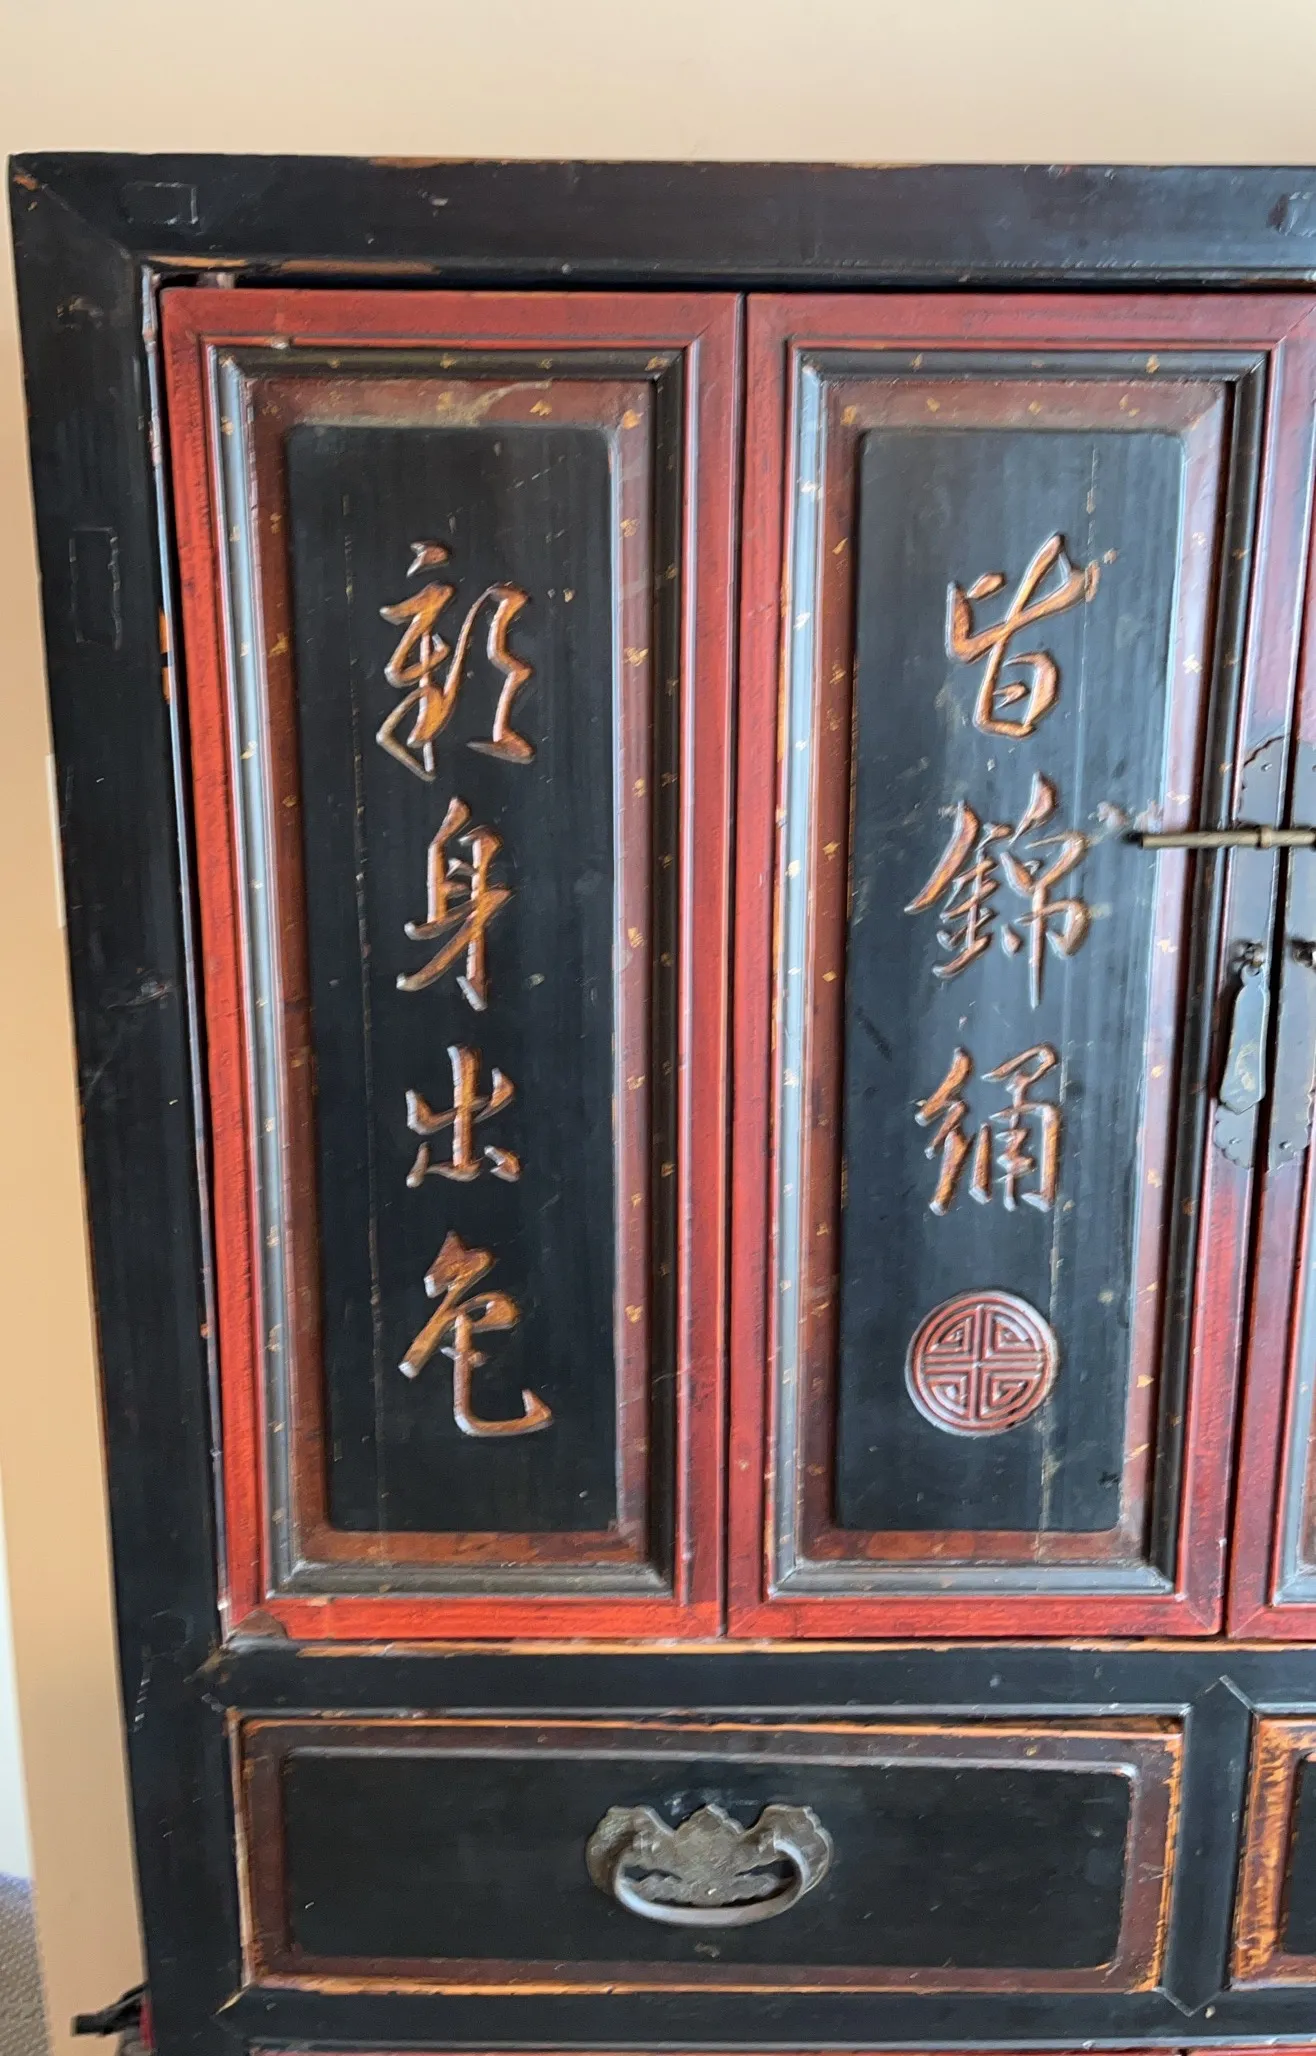 皆錦繡
親身出色